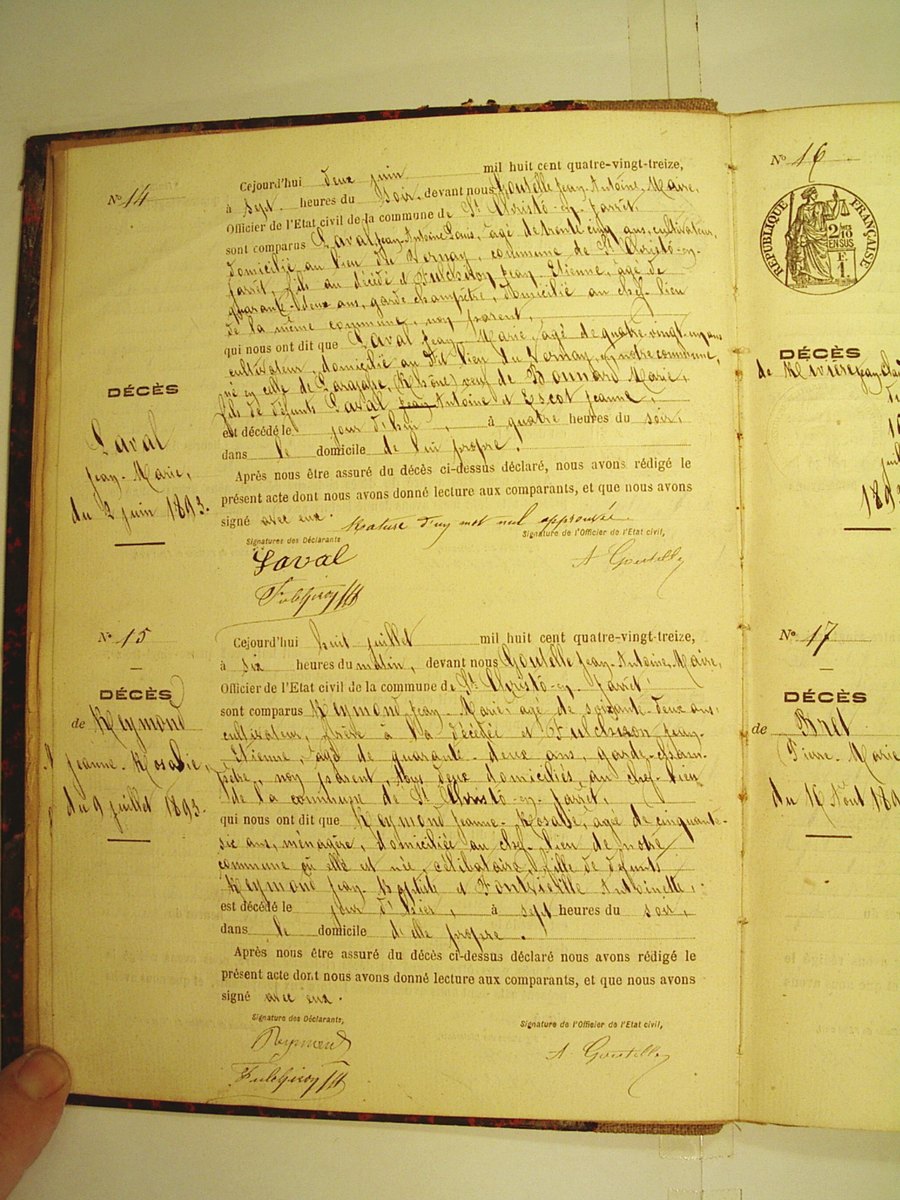 N° 14
DÉCÈS
Laval
Jean-Marie,
du 2 juin 1893.
Cejourd'hui deux juin mil huit cent quatre-vingt-treize,
à sept heures du soir, devant nous Goutelle Jean-Antoine, Maire,
Officier de l'Etat civil de la commune de St Christô-en-Jarret,
sont comparus Laval Jean-Antoine Louis, âgé de trente cinq ans, cultivateur,
domicilié au lieu du Vernay, commune de St Christô-en-
Jarret, fils au décédé et Fulchiron Jean-Etienne, âgé de
quarante-deux ans, garde champêtre, domicilié au chef-lieu
de la même commune, non parent,
qui nous ont dit que Laval Jean-Marie, âgé de quatre-vingt-un ans
cultivateur, domicilié au dit lieu du Vernay, en notre commune,
né en celle de (Rhône) veuf de Bonnard Marie,
fils de défunts Laval Jean Antoine et Escot Jeanne,
est décédé le jour d'hui, à quatre heures du soir,
dans le domicile de lui propre.
Après nous être assuré du décès ci-dessus déclaré, nous avons rédigé le
présent acte dont nous avons donné lecture aux comparants, et que nous avons
signé avec eux. Rature d'un mot nul approuvée
Signatures des Déclarants
Signature de l'Officier de l'Etat civil,
Laval
A Goutelle
Fulchiron
N° 15
DÉCÈS
de Reymond
Jeanne-Rosalie,
du 9 juillet 1893.
Cejourd'hui huit juillet mil huit cent quatre-vingt-treize,
à six heures du matin, devant nous Goutelle Jean-Antoine, Maire,
Officier de l'Etat civil de la commune de St Christô-en-Jarret
sont comparus Reymond Jean-Marie âgé de soixante-deux ans,
cultivateur, frère à la décédée et Fulchiron Jean-
Etienne, âgé de quarante-deux ans, garde-cham-
pêtre, non parent, tous deux domiciliés au chef-lieu
de la commune de St Christô-en-Jarret,
qui nous ont dit que Reymond Jeanne-Rosalie, âgée de cinquante-
six ans, ménagère, domiciliée au chef-lieu de notre
commune où elle est née, célibataire, fille de défunts
Reymond Jean-Baptiste et Fontvieille Antoinette,
est décédé le jour d'hier, à sept heures du soir,
dans le domicile d'elle propre.
Après nous être assuré du décès ci-dessus déclaré nous avons rédigé le
présent acte dont nous avons donné lecture aux comparants, et que nous avons
signé avec eux.
Signature des Déclarants,
Signature de l'Officier de l'Etat civil,
Reymond
A Goutelle
Fulchiron
N° 16
RÉPUBLIQUE FRANÇAISE
DÉCÈS
de Rivière
189
N° 17
DÉCÈS
de Bret
Marie
du 16 Aout 18